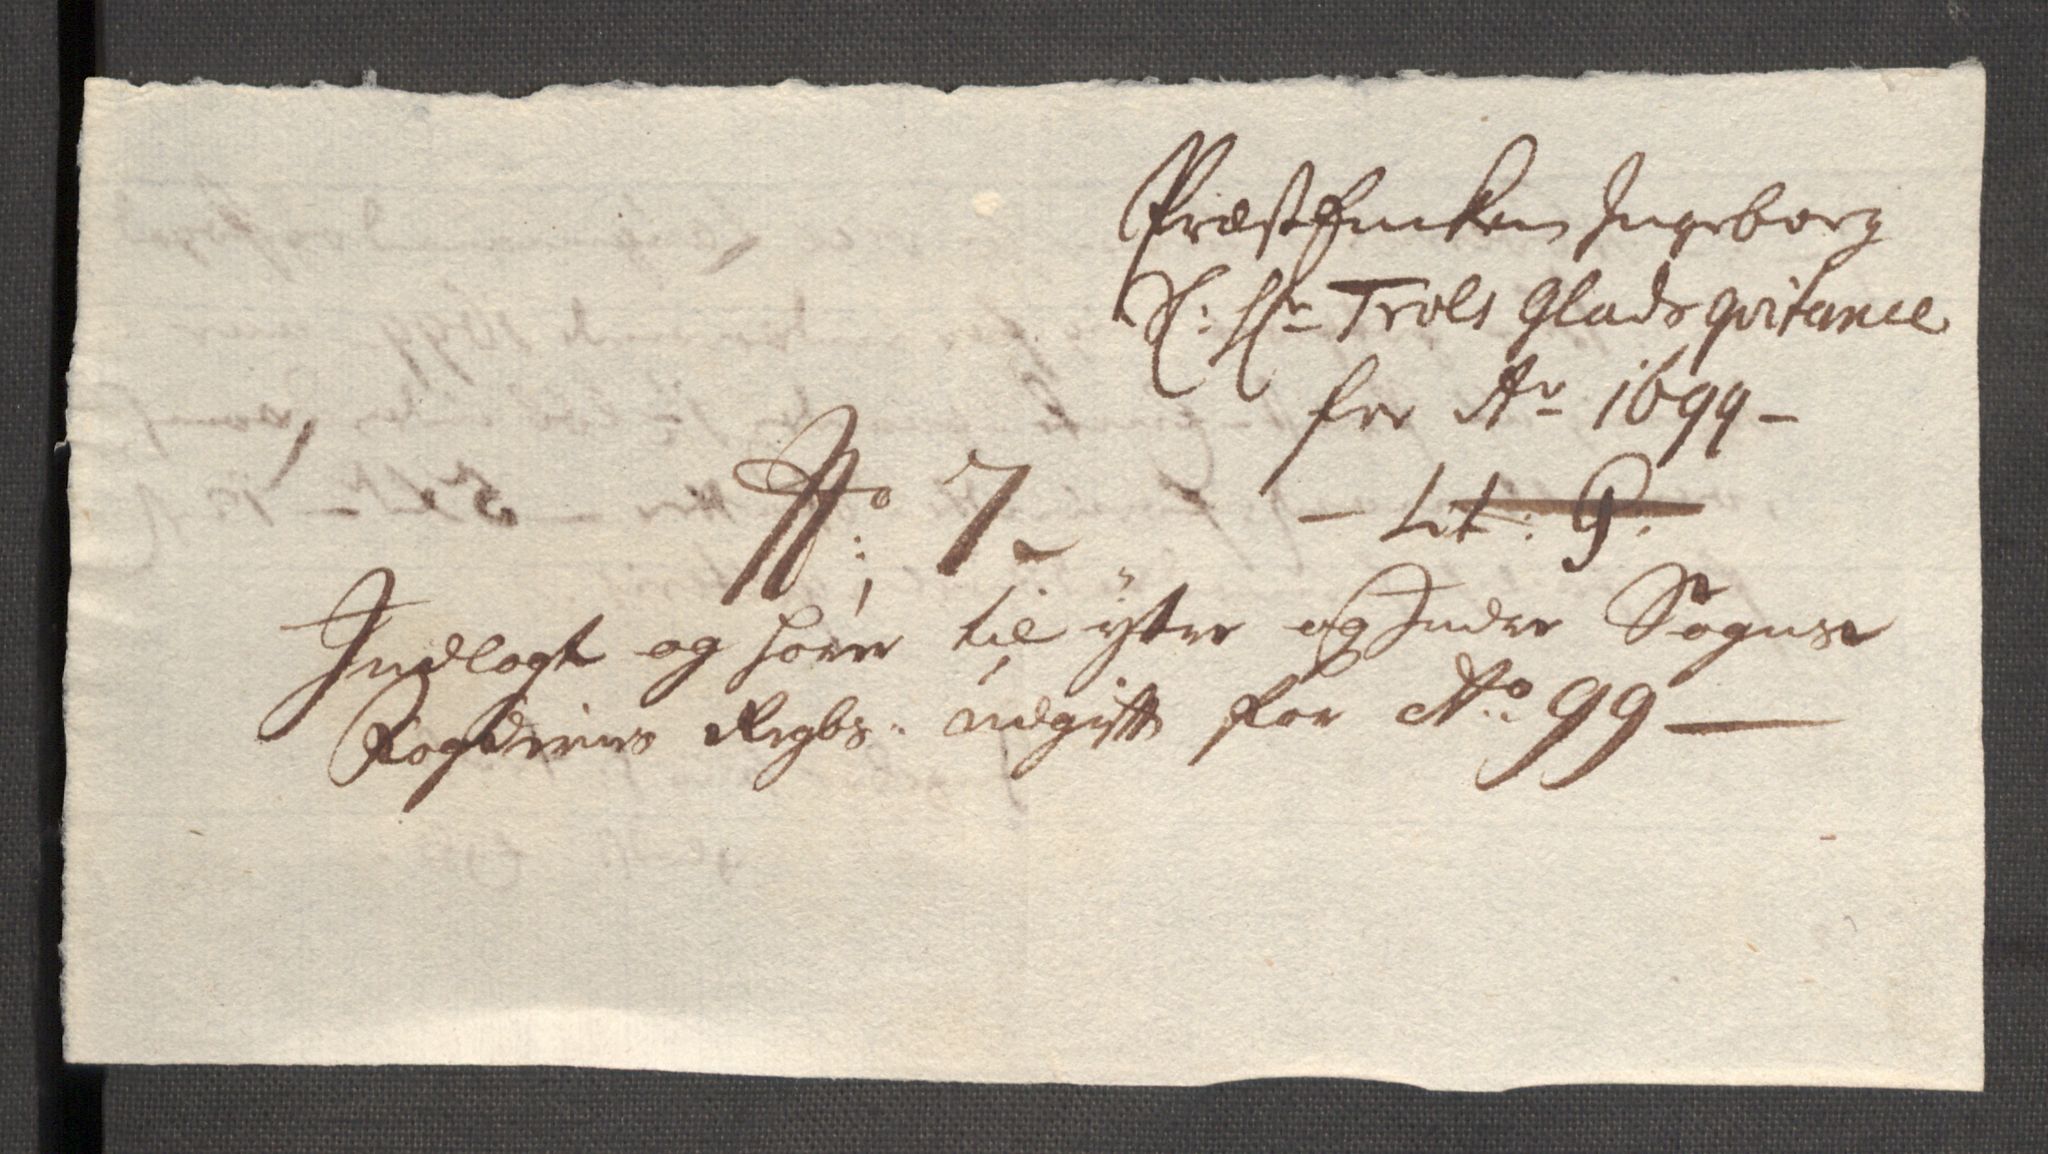 Præst Enken Ingeborg
S: Hr Trols Glads qvitance
for Ao 1699 -
- Lit: P.
No: 7
Indlagt og hører til ytre og Indre Sogns
Fogderiers Regbs: udgift for Ao: 99